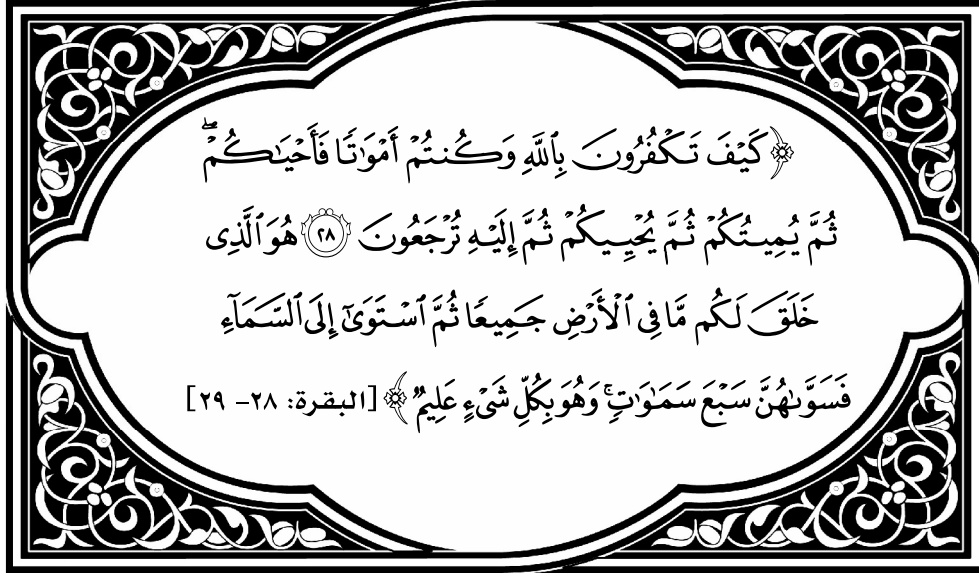 ﴿كَيْفَ تَكْفُرُونَ بِٱللَّهِ وَكُنتُمْ أَمْوَٰتًا فَأَحْيَٰكُمْۖ
ثُمَّ يُمِيتُكُمْ ثُمَّ يُحْيِيكُمْ ثُمَّ إِلَيْهِ تُرْجَعُونَ ٢٨ هُوَ ٱلَّذِى
خَلَقَ لَكُم مَّا فِى ٱلْأَرْضِ جَمِيعًا ثُمَّ ٱسْتَوَىٰٓ إِلَى ٱلسَّمَآءِ
فَسَوَّىٰهُنَّ سَبْعَ سَمَٰوَٰتٍۚ وَهُوَ بِكُلِّ شَىْءٍ عَلِيمٌ﴾ [البقرة: ٢٨- ٢٩]